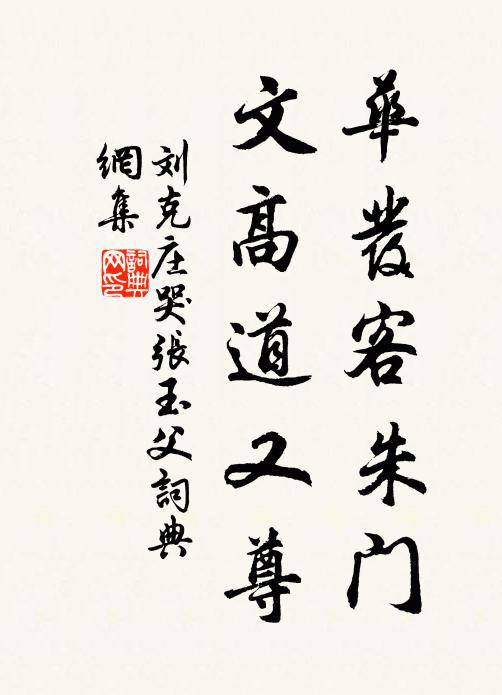 華發客朱門
文高道又尊
刘克庄哭張玉父詞典
網集
詞典
网印